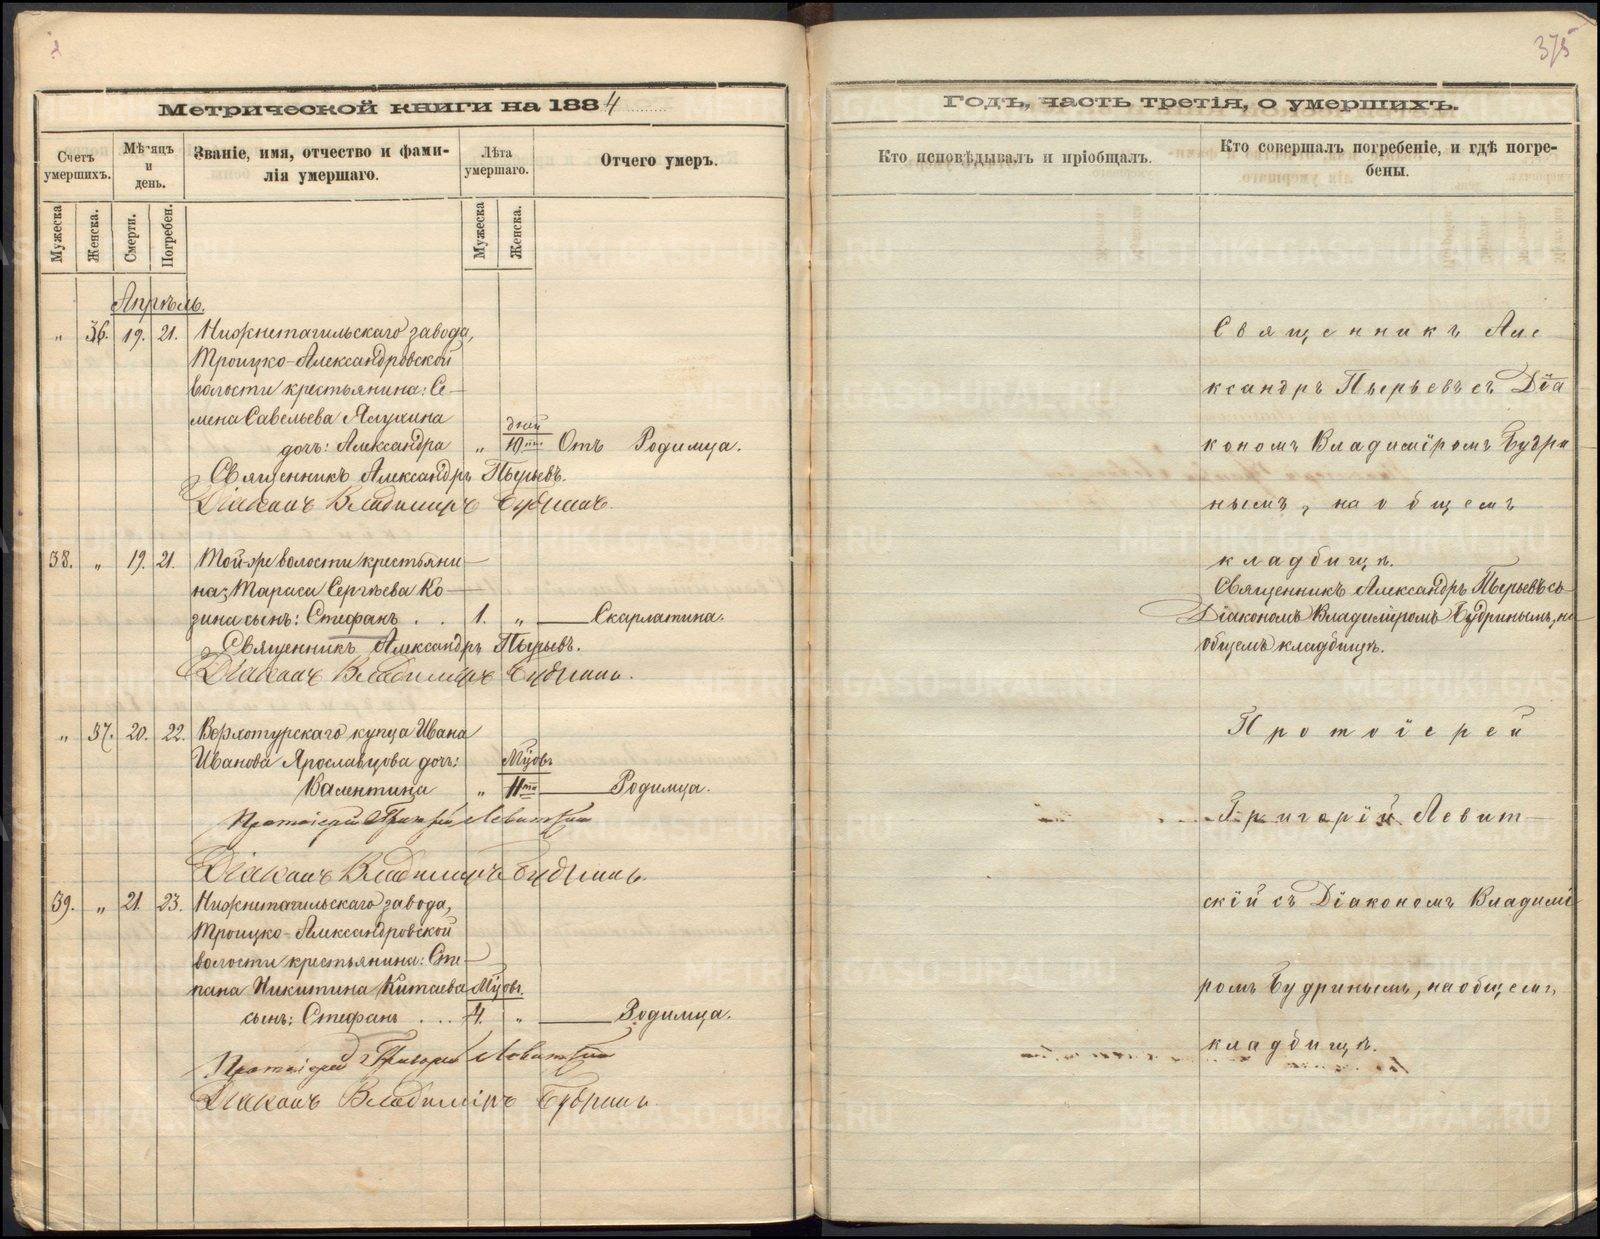 375
Метрической книги на 1884
Годъ, часть третія, о умершихъ.
Счетъ умершихъ.
Мѣсяцъ и день.
Званіе, имя, отчество и фами-
лія умершаго.
Лѣта умершаго.
Отчего умеръ.
Кто исповѣдывалъ и пріобщалъ.
Кто совершалъ погребеніе, и гдѣ погре-
бены.
Мужеска
Женска.
Смерти.
Погребен.
Мужеска
Женска.
Апрѣль.
" 36. 19. 21. Нижнетагильскаго завода,
Троицко-Александровской
волости крестьянина: Се-
мена Савельева
дней
дочь: Александра " 10 Отъ Родимца.
Священникъ Александръ Пырьевъ.
Діаконъ Владимиръ Будринъ.
Священникъ Але
ксандръ Пырьевъ съ Діа
кономъ Владиміромъ Будри
нымъ, на общемъ
кладбищѣ.
38. " 19. 21. Той-же волости крестьяни-
на: Тараса Сергѣева Ко-
зина сынъ: Стефанъ . . 1. " Скарлатина.
Священникъ Александръ Пырьевъ.
Діаконъ Владимиръ Будринъ.
Священникъ Александръ Пырьевъ съ
Діакономъ Владиміромъ Будринымъ, на
общемъ кладбищѣ.
" 37. 20. 22. Верхотурскаго купца Ивана
Иванова Ярославцова дочь:
Мцовъ
Валентина " 11ти Родимца.
Протоіерей Григорій Левитскій
Діаконъ Владимиръ Будринъ.
Протоіерей
Григорій Левит-
скій съ Діакономъ Владимі
ромъ Будринымъ, на общемъ
кладбищѣ.
39. " 21. 23. Нижнетагильскаго завода,
Троицко-Александровской
волости крестьянина: Сте-
пана Никитина Китаева Мцовъ.
сынъ: Стефанъ . . . 4. " Родимца.
Протоіерей Григорій Левитскій
Діаконъ Владиміръ Будринъ.
METRIKI.GASO-URAL.RU